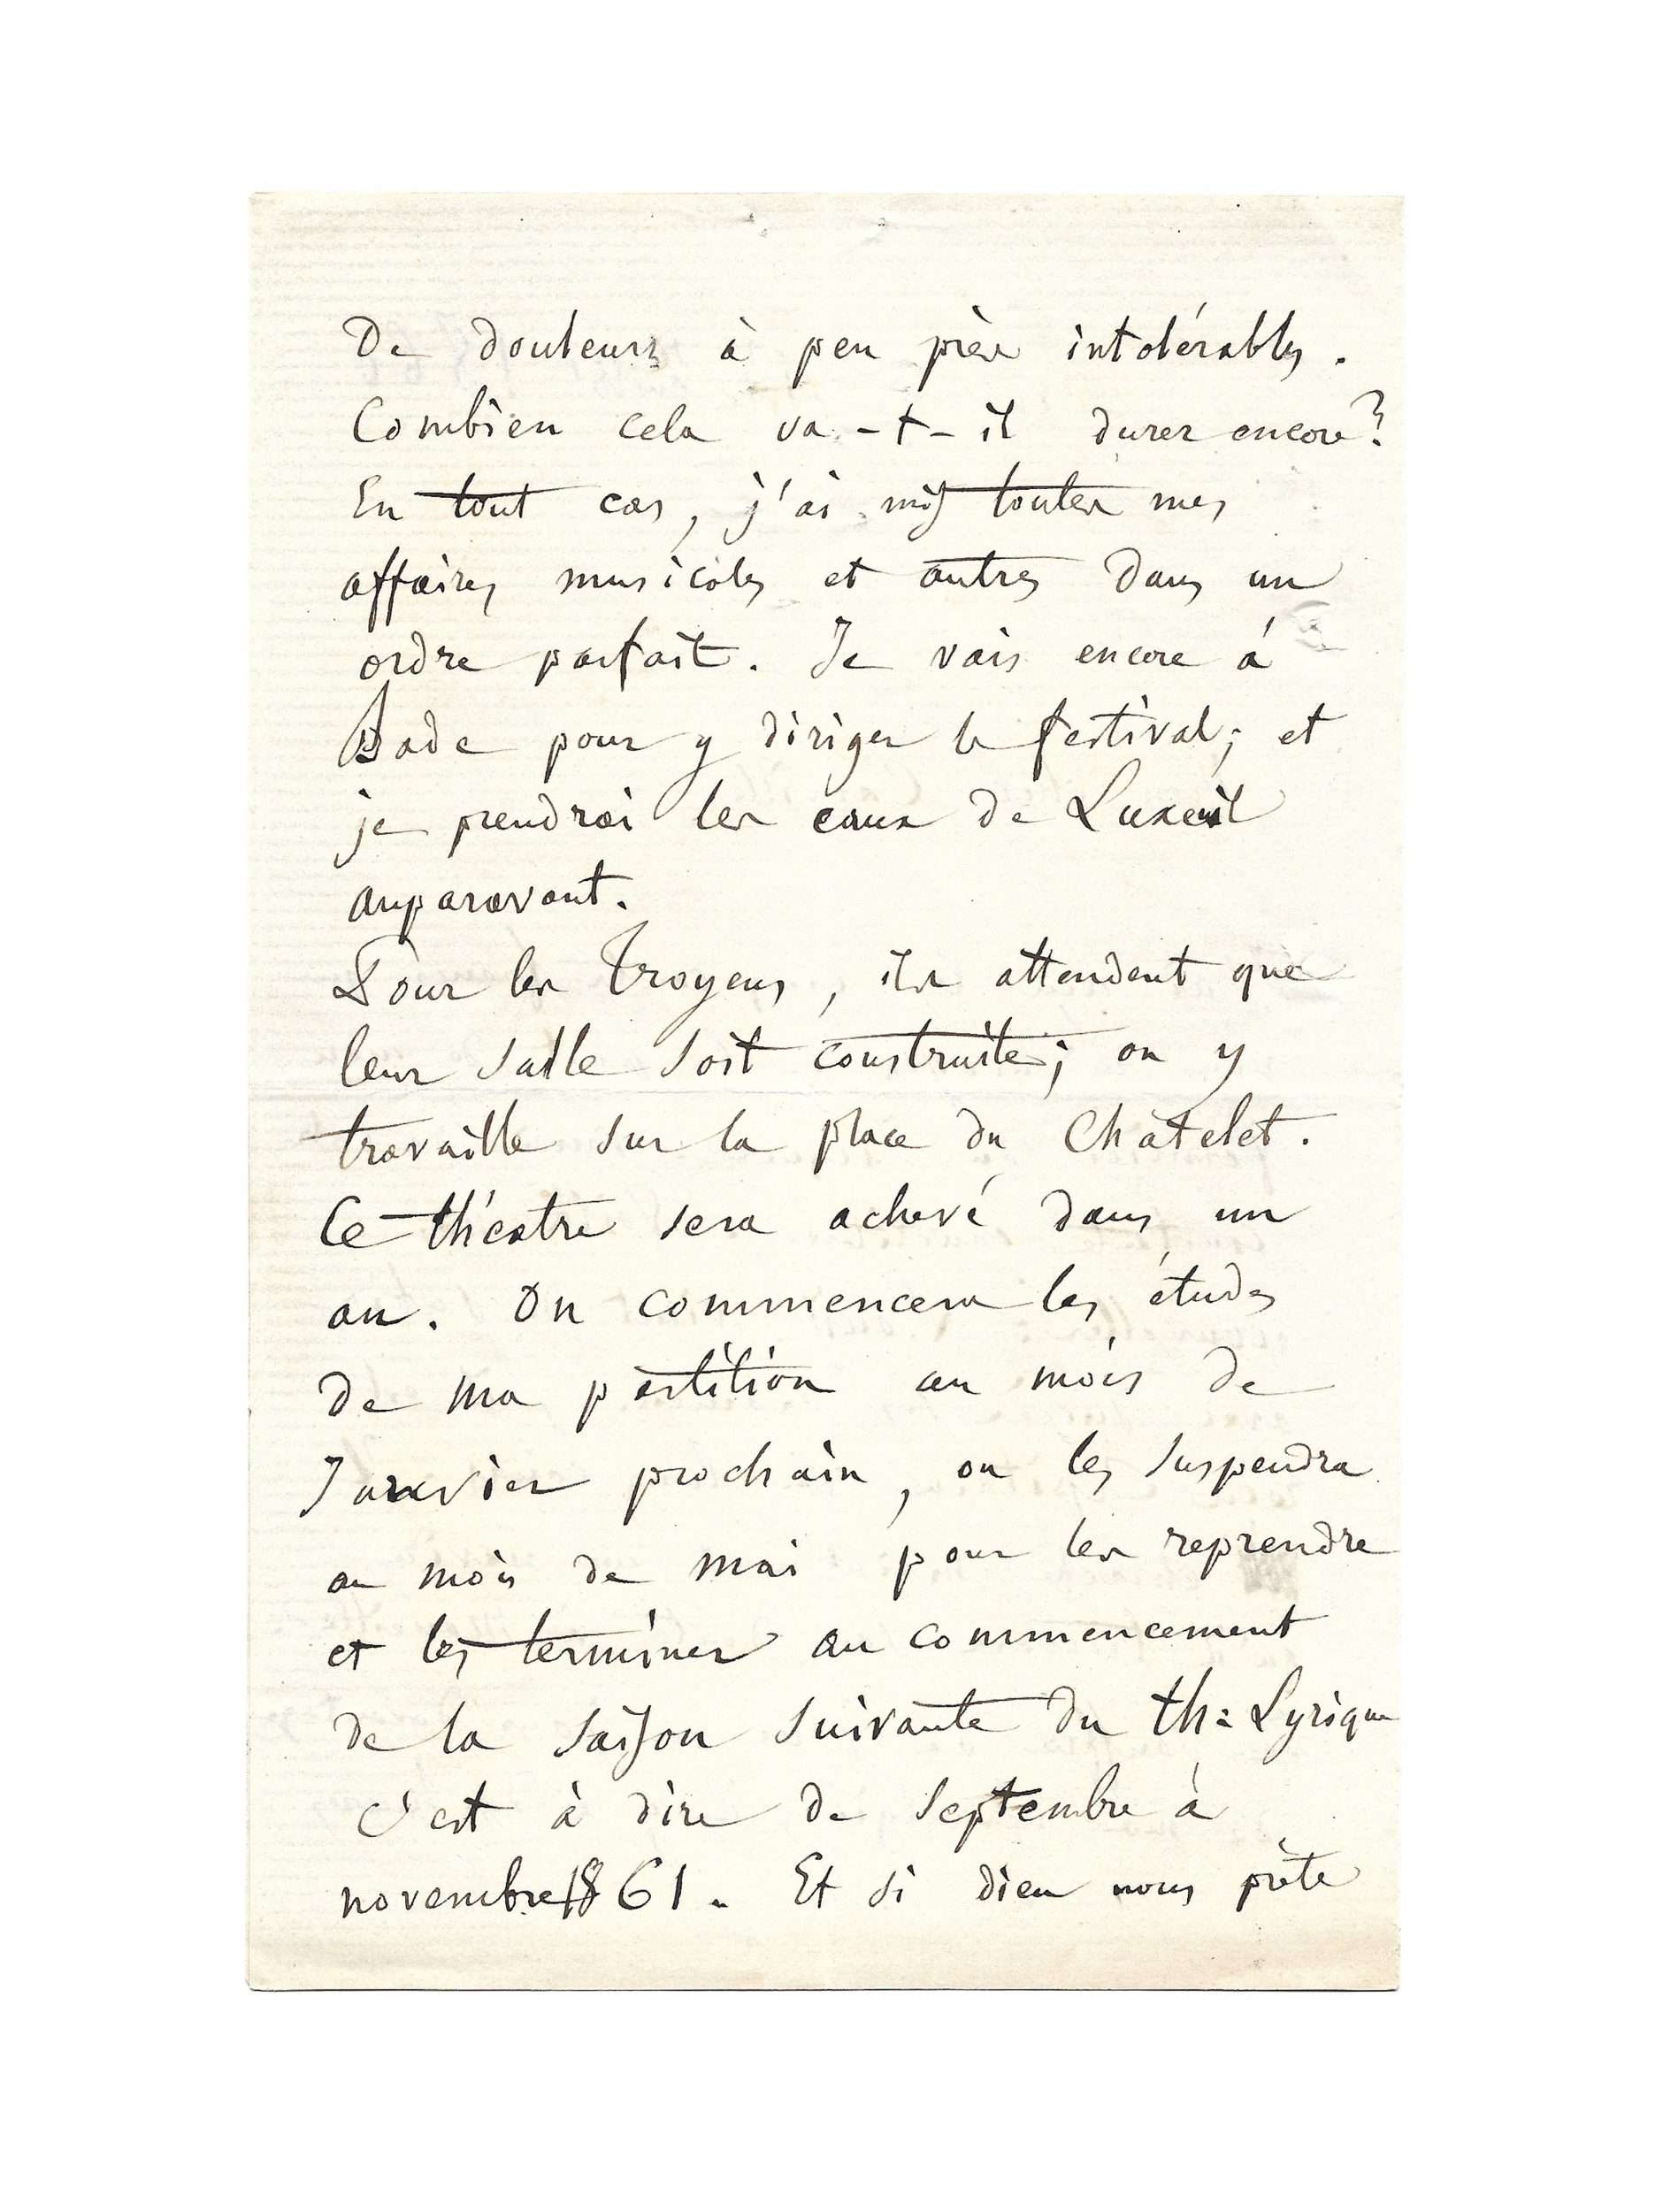 De douleurs à peu près intolérables.
Combien cela va-t-il durer encore?
En tout cas, j'ai mis toutes mes
affaires musicales et autres dans un
ordre parfait. Je vais encore à
Bade pour y diriger le festival; et
je prendrai les eaux de Luxeuil
auparavant.
Pour les Troyens, ils attendent que
leur salle soit construite; on y
travaille sur la place du Châtelet.
Ce théatre sera achevé dans un
an. On commencera les études
de ma partition au mois de
Janvier prochain, on les suspendra
au mois de mai pour les reprendre
et les terminer au commencement
de la saison suivante du th: Lyrique
c'est à dire de septembre à
novembre 1861. Et si dieu nous prête